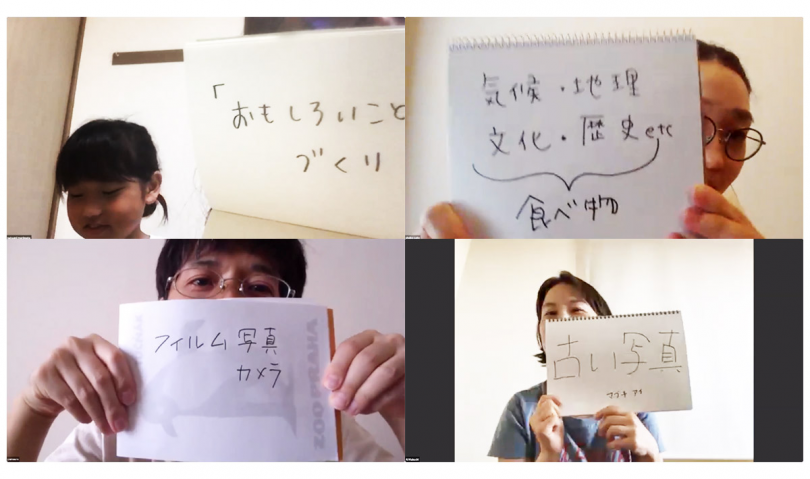 「おもしろいこと
づくり
気候・地理
文化・歴史etc
食べ物
フィルム写真
カメラ
古い写真